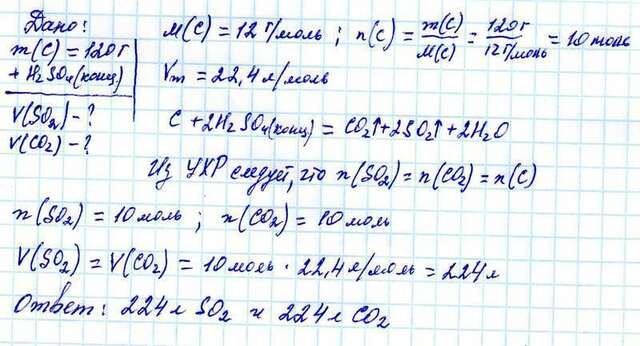 Дано:
m(C) = 120г
+ H₂SO₄(конц)
V(SO₂) - ?
V(CO₂) - ?
M(C) = 12 г/моль ; n(C) = m(C)/M(C) = 120г/12г/моль = 10 моль
Vm = 22,4 л/моль
C + 2H₂SO₄(конц) = CO₂↑ + 2SO₂↑ + 2H₂O
Из УХР следует, что n(SO₂) = n(CO₂) = n(C)
n(SO₂) = 10 моль ; n(CO₂) = 10 моль
V(SO₂) = V(CO₂) = 10 моль · 22,4 л/моль = 224 л
Ответ: 224 л SO₂ и 224 л CO₂